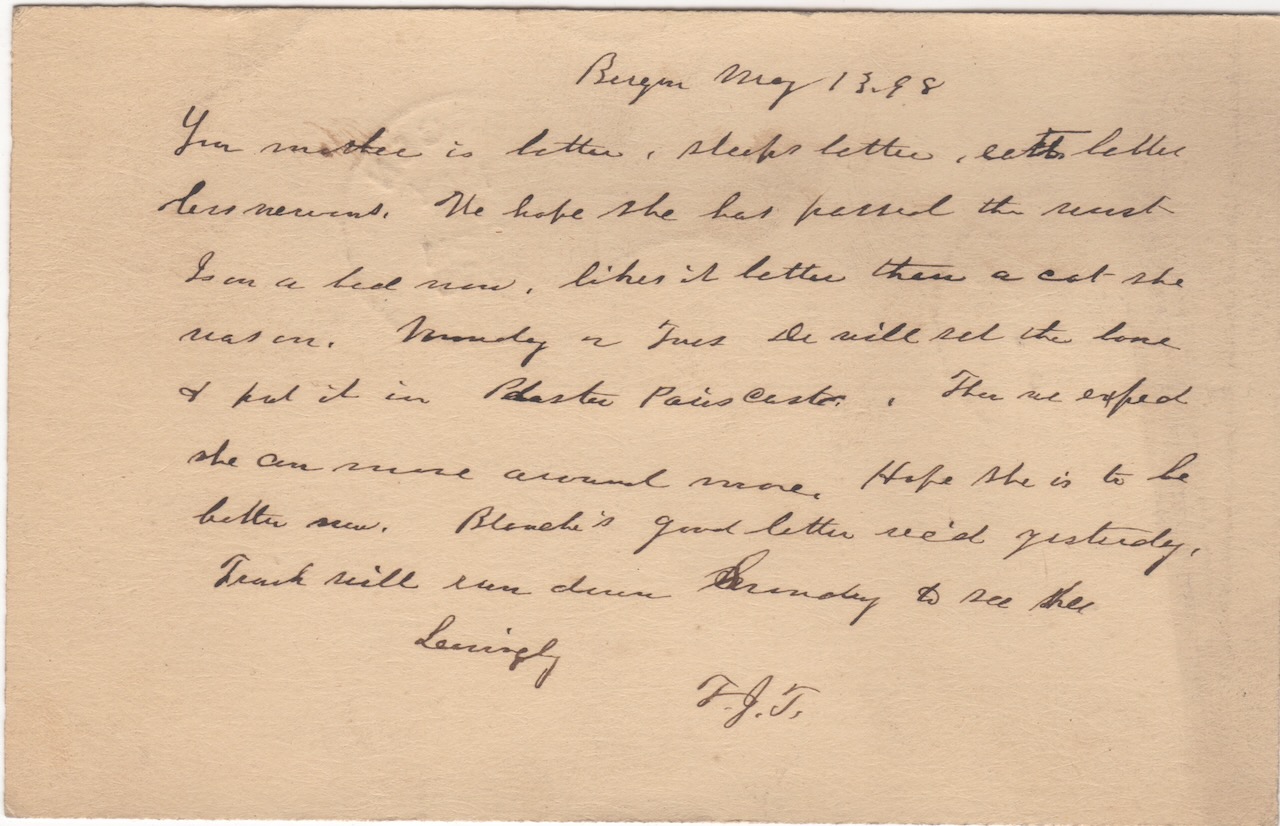 Bergen May 13. 98
Your mother is better, sleeps better, eats better
less nervous. We hope she has passed the worst
Is on a bed now, likes it better than a cot she
was on. Monday or Tues Dr will set the bone
& put it in Plaster Paris Caste. Then we expect
she can move around more. Hope she is to be
better now. Blanche's good letter rec'd yesterday.
Frank will run down Sunday to see her
Lovingly
F.J.T.